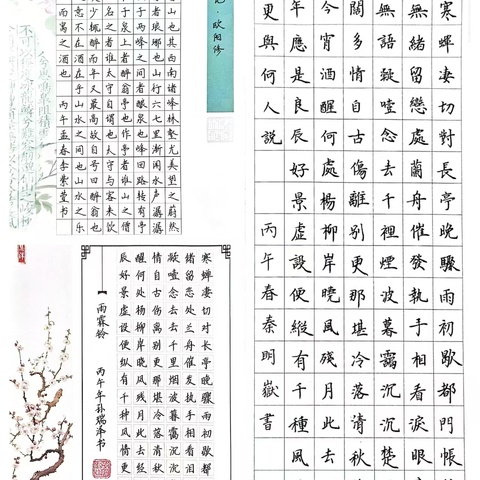 寒蝉凄切對長亭晚驟雨初歇都門帳
無緒留戀處蘭舟催發執手相看淚眼
無語凝噎念去去千里煙波暮靄沉沉楚
闊多情自古傷離別更那堪冷落清秋
今宵酒醒何處楊柳岸曉風殘月此去
年應是良辰好景虛設便縱有千種風
更與何人說 丙午春秦明嶽書
记·欧阳修
山也其西南诸峰林壑尤美望之蔚然
者琅琊也山行六七里渐闻水声潺潺
于两峰之间者酿泉也峰回路转有亭
于泉上者醉翁亭也作亭者谁山之僧
名之者谁太守自谓也太守与客来饮
少辄醉而年又最高故自号曰醉翁也
意不在酒在乎山水之间也山水之乐
而寓之酒也 丙午孟春李崇莹书
寒蝉凄切对长亭晚骤雨初歇都
绪留恋处兰舟催发执手相看泪
凝噎念去去千里烟波暮霭沉沉
情自古伤离别更那堪冷落清秋
醒何处杨柳岸晓风残月此去经
辰好景虚设便纵有千种风情更
【雨霖铃】
丙午年孙瑞泽书